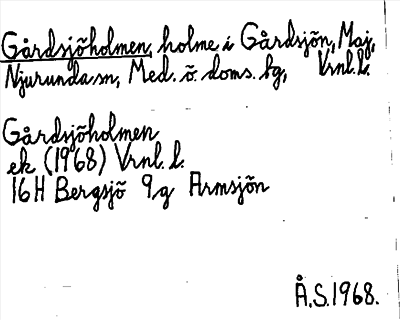 Gårdsjöholmen, holme i Gårdsjön, Maj,
Njurunda sn, Med. ö. doms. bg, Vrnl. l.
Gårdsjöholmen
ek (1968) Vrnl. l.
16H Bergsjö 9g Armsjön
Å.S. 1968.